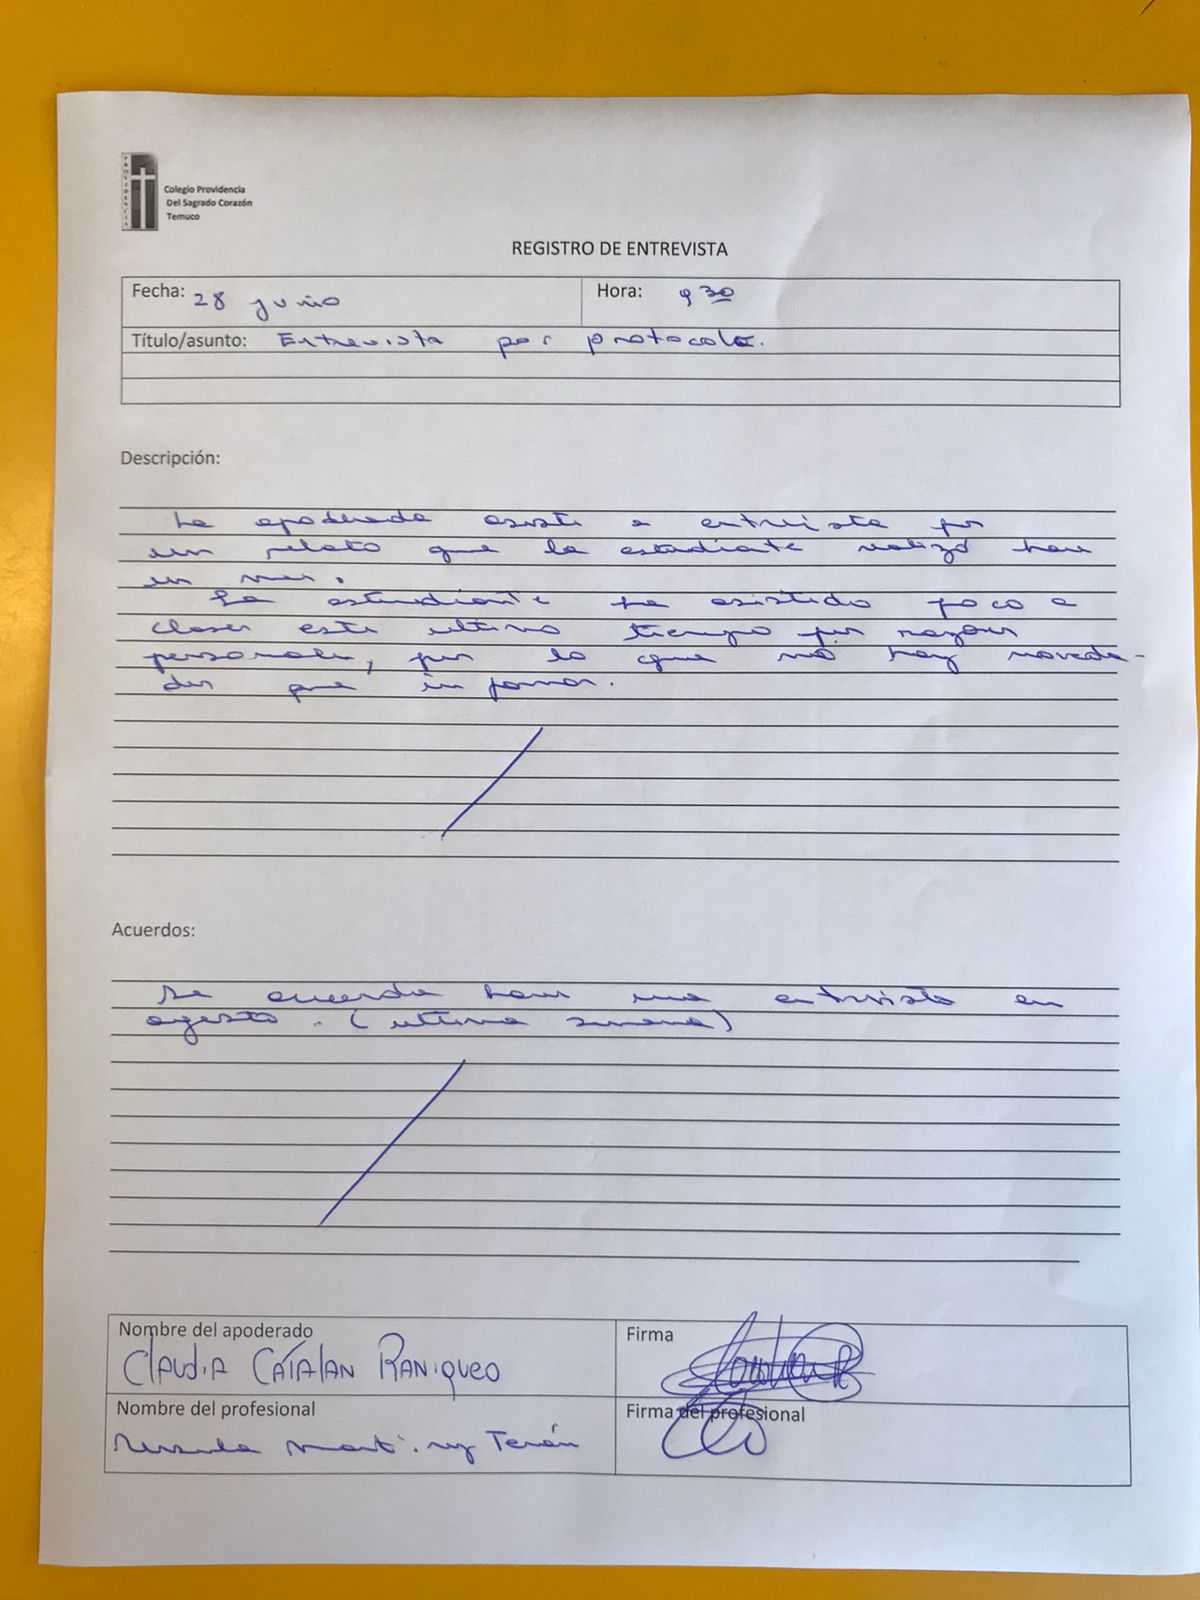 PROVIDENCIA
Colegio Providencia
Del Sagrado Corazón
Temuco
REGISTRO DE ENTREVISTA
Fecha: 28 junio
Hora: 930
Título/asunto: Entrevista por protocolo.
Descripción:
La apoderada asiste a entrevista por
un relato que la estudiante realizó hace
un mes.
La estudiante ha asistido poco a
clases este ultimo tiempo por razones
personales, por lo que no hay noveda-
des que informar.
Acuerdos:
Se acuerda hacer una entrevista en
agosto. (ultima semana)
Nombre del apoderado
Claudia Catalan Raniqueo
Firma
Nombre del profesional
Martinez Terán
Firma del profesional